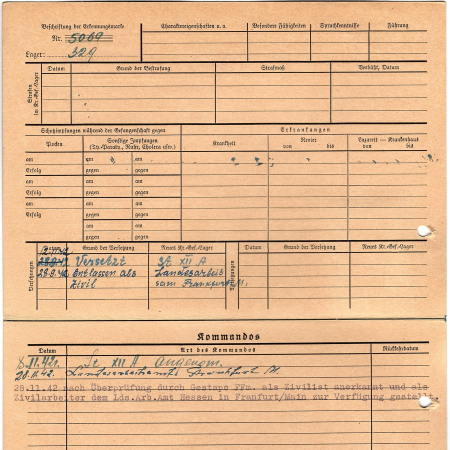 Beschriftung der Erkennungsmarke
Nr. 5069
Lager: 329
Charaktereigenschaften u. a.
Besondere Fähigkeiten
Sprachkenntnisse
Führung
Strafen im Kr.-Gef.-Lager
Datum Grund der Bestrafung Strafmaß Verbüßt, Datum
Schutzimpfungen während der Gefangenschaft gegen
Erkrankungen
Pocken
Sonstige Impfungen
(Ty.-Paraty., Ruhr, Cholera usw.)
Krankheit
Revier
von bis
Lazarett — Krankenhaus
von bis
am am
Erfolg gegen gegen
am am
Erfolg gegen gegen
am am
Erfolg gegen gegen
am am
Erfolg gegen gegen
Versetzungen
Datum Grund der Versetzung Neues Kr.-Gef.-Lager
Versetzt St XII A
Entlassen als Landesarbeit
Zivil
Versetzungen
Datum Grund der Versetzung Neues Kr.-Gef.-Lager
Kommandos
Datum Art des Kommandos Rückkehrdatum
8.11.42. St XII A
28.11.42. Frankfurt M.
28.11.42 nach Überprüfung durch Gestapo FFm. als Zivilist anerkannt und als
Zivilarbeiter dem Lds.Arb.Amt Hessen in Franfurt/Main zur Verfügung gestellt